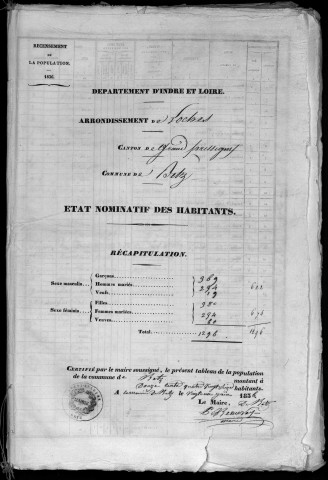 RECENSEMENT
DE
LA POPULATION.
1836
DEPARTEMENT D'INDRE ET LOIRE.
ARRONDISSEMENT DE Loches
CANTON DE Grand pressigny
COMMUNE DE Betz
ETAT NOMINATIF DES HABITANTS.
RÉCAPITULATION.
Sexe masculin
Garçons
Hommes mariés
294
Veufs
19
Sexe féminin
Filles
Femmes mariées
294
Veuves
Total
1296
1296
CERTIFIÉ par le maire soussigné, le présent tableau de la population
de la commune de Betz montant à
Douze cents quatre vingt seize habitants.
A le 1836
Le Maire, de Betz